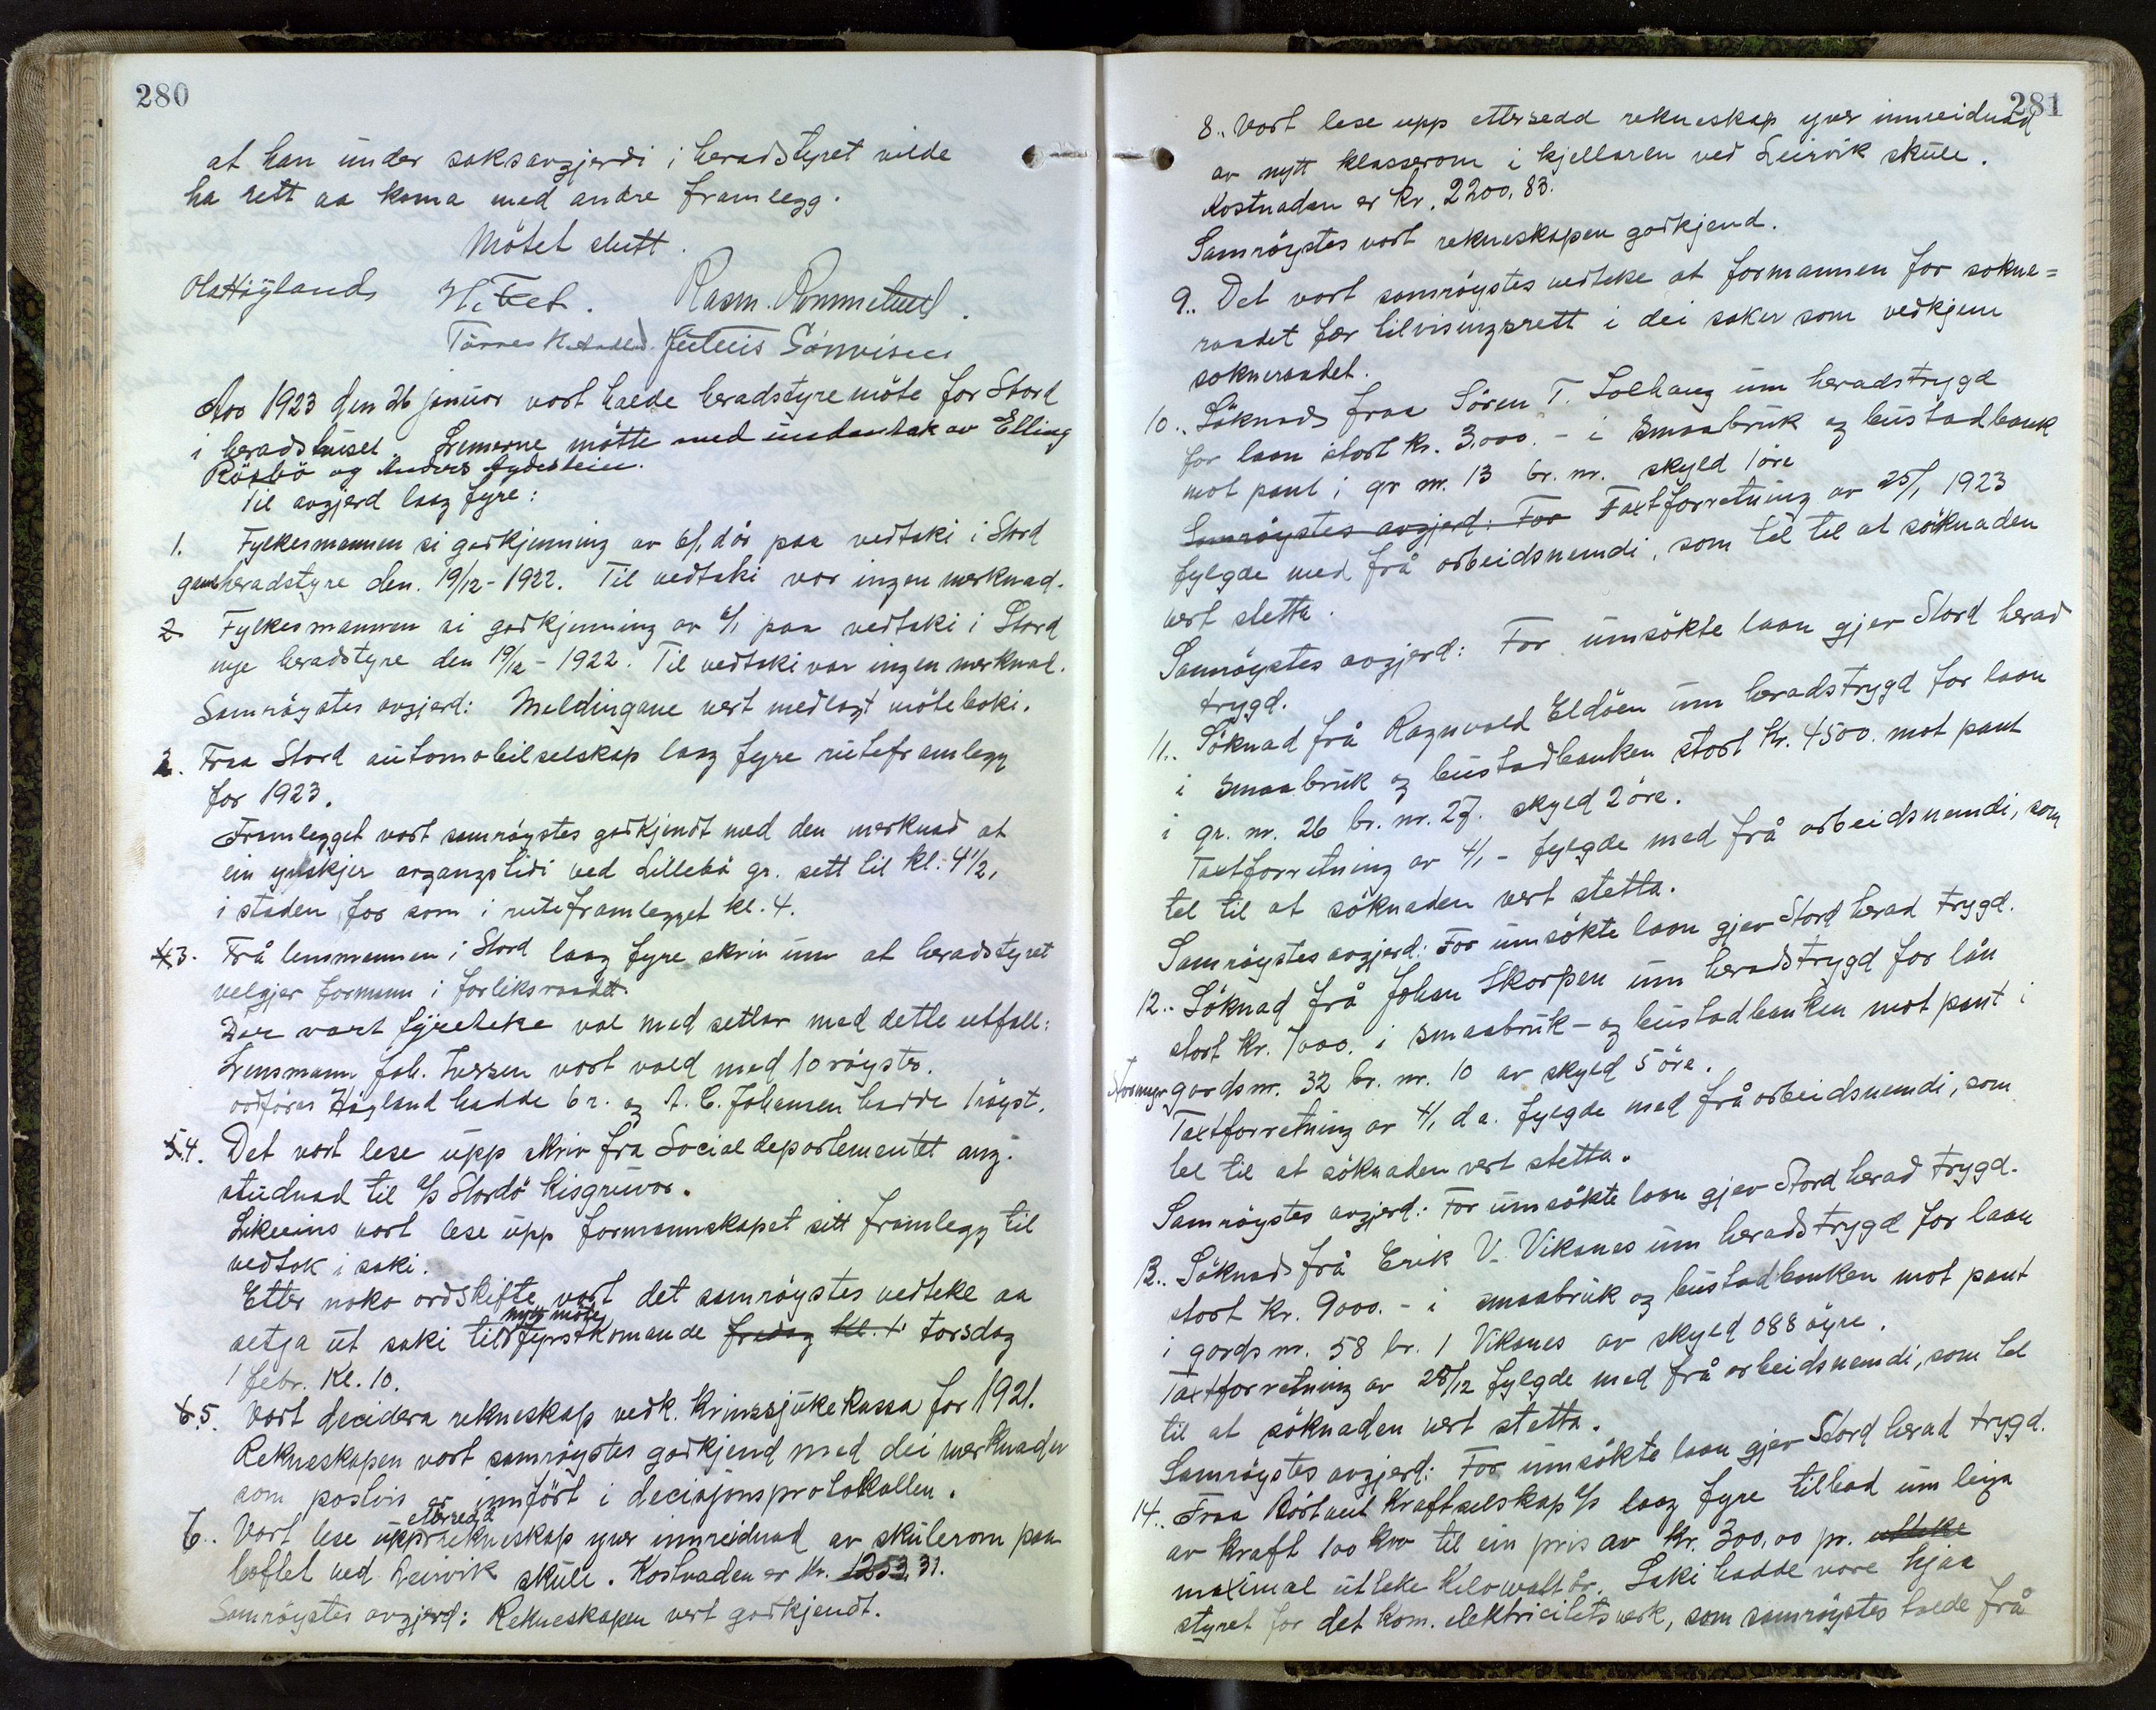 280
at han under saksavgjerdi i heradstyret vilde
ha rett aa koma med andre framlegg.
Mötet slutt.
Ola Högland H. Fret. Rasm. Rommetveit.
Julius Sörvisen
Aar 1923 den 26 januar vart halde heradstyremöte for Stord
i heradshuset. Lemerne mötte med undantak av Elling
Rösbö og Anders Agdestein.
Til avgjerd laag fyre:
1. Fylkesmannen si godkjenning av 6/1 d år paa vedtaki i Stord
gamleheradstyre den. 19/12-1922. Til vedtaki var ingen merknad.
2 Fylkesmannen si godkjenning av 6/1 paa vedtaki i Stord
nye heradstyre den 19/12-1922. Til vedtaki var ingen merknad.
Samröystes avgjerd: Meldingane vert medlagt möteboki.
2. Fraa Stord automobilselskap laag fyre ruteframlegg
for 1923.
Framlegget vart samröystes godkjendt med den merknad at
ein ynskjer avgangstidi ved Lillebö gr. sett til kl. 4 1/2,
i staden for som i ruteframlegget kl. 4.
43. Frå lensmannen i Stord laag fyre skriv um at heradstyret
velgjer formann i forliksraadet.
Der vart fyreteke val med setlar med dette utfall:
Lensmann Joh. Iversen vart vald med 10 röyster.
ordförar Högland hadde 6 r. og A. C. Johansen hadde 1 röyst.
54. Det vart lese upp skriv fra Socialdepartementet ang.
studnad til a/s Stordö kisgruvor.
Likeeins vart lese upp formannskapet sitt framlegg til
vedtak i saki.
Etter noko ordskifte vart det samröystes vedteke aa
setja ut saki til nytt möte fyrstkomande fredag kl. 4 torsdag
1 febr. Kl. 10.
65. Vart decidera rekneskap vedk. Krinssjukekassa for 1921.
Rekneskapen vart samröystes godkjend med dei merknader
som postvis er innfört i decisjonsprotokollen.
6.. Vart lese upp ettersedd rekneskap yver innreidnad av skulerom paa
loftet ved Leirvik skule. Kostnaden er kr. 1253,31.
Samröystes avgjerd: Rekneskapen vert godkjendt.
281
8.. Vart lese upp ettersedd rekneskap yver innreidnad
av nytt klasserom i kjellaren ved Leirvik skule.
Kostnaden er kr. 2200,83.
Samröystes vart rekneskapen godkjend.
9.. Det vart samröystes vedteke at formannen for sokne=
raadet fær tilvisingsrett i dei saker som vedkjem
sokneraadet.
10.. Söknad fraa Sören T. Solhaug um heradstrygd
for laan stort kr. 3000.- i Smaabruk og bustadbank
mot pant i gr nr. 13 br. nr. skyld 1 öre
Samröystes avgjerd: For Taxtforretning av 25/1 1923
fylgde med frå arbeidsnemdi, som tel til at söknaden
vert stetta.
Samröystes avgjerd: For umsökte laan gjev Stord herad
trygd.
11.. Söknad frå Ragnvald Eldöen um heradstrygd for laan
i smaabruk og bustadbanken stort Kr. 4500. mot pant
i gr. nr. 26 br. nr. 27. skyld 2 öre.
Taxtforretning av 4/1 - fylgde med frå arbeidsnemdi, som
tel til at söknaden vert stetta.
Samröystes avgjerd: For umsökte laan gjev Stord herad trygd.
12.. Söknad frå Johan Skorpen um heradstrygd for lån
stort kr. 7000. i smaabruk- og bustadbanken mot pant i
gardsnr. 32 br. nr. 10 av skyld 5 öre.
Taxtforretning av 4/1 d a. fylgde med frå arbeidsnemdi, som
tel til at söknaden vert stetta.
Samröystes avgjerd: For umsökte laan gjev Stord herad trygd.
13.. Söknad frå Erik V. Vikanes um heradstrygd for laan
stort kr. 9000.- i smaabruk og bustadbanken mot pant
i gards nr. 58 br. 1 Vikanes av skyld 088 öyre.
Taxtforretning av 28/12 fylgde med frå arbeidsnemdi, som tel
til at söknaden vert stetta.
Samröystes avgjerd: For umsökte laan gjev Stord herad trygd.
14.. Fraa Kraftselskap a/s laag fyre tilbod um leiga
av kraft 100 kw til ein pris av kr. 300,00 pr. utteke
maximal utteke kilowatt år. Saki hadde vore hjaa
styret for det kom. elektricitetsverk, som samröystes raade frå